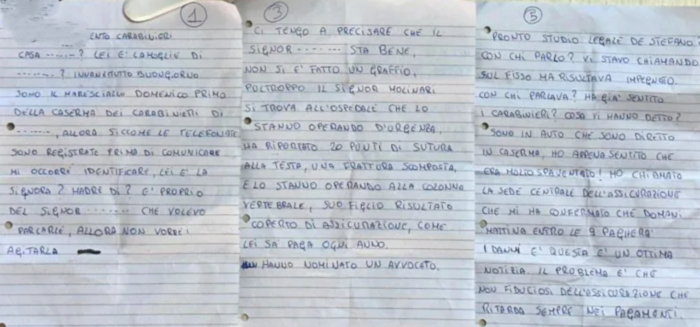 1
ENTO CARABINIERI
CASA .......? LEI E' LA MOGLIE DI
.......? INNANZITUTTO BUONGIORNO
SONO IL MARESCIALLO DOMENICO PRIMO
DELLA CASERMA DEI CARABINIERI DI
......., ALLORA SICCOME LE TELEFONATE
SONO REGISTRATE PRIMA DI COMUNICARE
MI OCCORRE IDENTIFICARE, LEI E' LA
SIGNORA? MADRE DI? E' PROPRIO
DEL SIGNOR ....... CHE VOLEVO
PARLARLE, ALLORA NON VORREI
AGITARLA
3
CI TENGO A PRECISARE CHE IL
SIGNOR ....... STA BENE,
NON SI E' FATTO UN GRAFFIO,
POLTROPPO IL SIGNOR MOLINARI
SI TROVA ALL'OSPEDALE CHE LO
STANNO OPERANDO D'URGENZA,
HA RIPORTATO 20 PUNTI DI SUTURA
ALLA TESTA, UNA FRATTURA SCOMPOSTA,
E LO STANNO OPERANDO ALLA COLONNA
VERTEBRALE, SUO FIGLIO RISULTATO
COPERTO DI ASSICURAZIONE, COME
LEI SA PAGA OGNI ANNO.
HANNO NOMINATO UN AVVOCATO.
5
PRONTO STUDIO LEGALE DE STEFANO?
CON CHI PARLO? VI STAVO CHIAMANDO
SUL FISSO MA RISULTAVA IMPEGNATO.
CON CHI PARLAVA? HA GIA' SENTITO
I CARABINIERI? COSA VI HANNO DETTO?
SONO IN AUTO CHE SONO DIRETTO
IN CASERMA, HO APPENA SENTITO CHE
ERA MOLTO SPAVENTATO! HO CHIAMATO
LA SEDE CENTRALE DELL'ASSICURAZIONE
CHE MI HA CONFERMATO CHE DOMANI
MATTINA ENTRO LE 9 PAGHERA'
I DANNI E' QUESTA E' UN OTTIMA
NOTIZIA. IL PROBLEMA E' CHE
NON FIDUCIOSI DELL'ASSICURAZIONE CHE
RITARDA SEMPRE NEI PAGAMENTI.